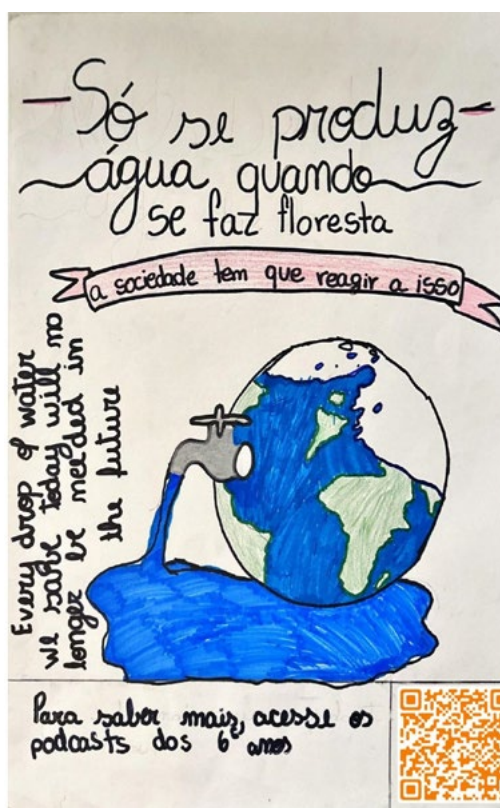 Só se produz
água quando
se faz floresta
a sociedade tem que reagir a isso
Every drop of water
we save today will no
longer be needed in
the future
Para saber mais, acesse os
podcasts dos 6º anos